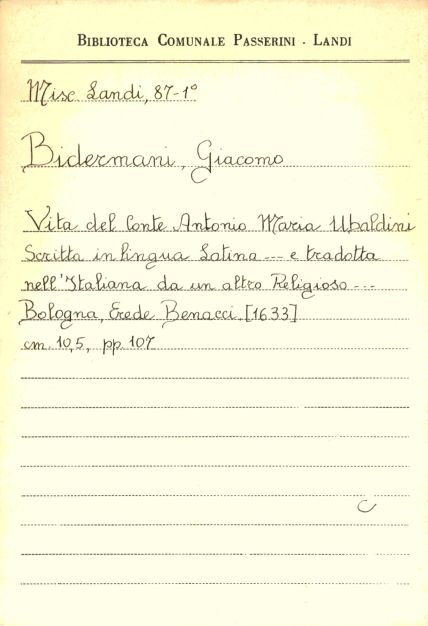 BIBLIOTECA COMUNALE PASSERINI - LANDI
Misc Landi, 87-1°
Bidermani, Giacomo
Vita del Conte Antonio Maria Ubaldini
Scritta in lingua Latina --- e tradotta
nell'Italiana da un altro Religioso ---
Bologna, Erede Benacci. [1633]
cm. 10,5, pp. 107
C